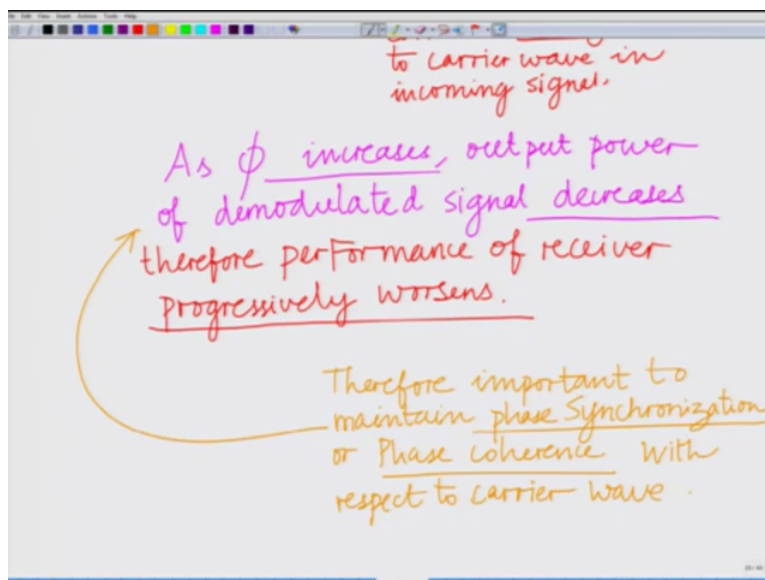 File Edit View Insert Actions Tools Help
to carrier wave in
incoming signal.
As ϕ increases, output power
of demodulated signal decreases
therefore performance of receiver
progressively worsens.
Therefore important to
maintain phase Synchronization
or Phase coherence with
respect to carrier wave.